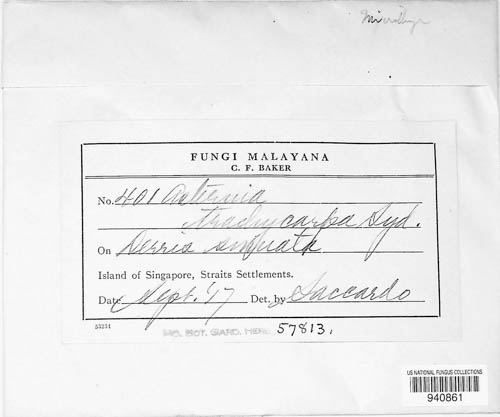 FUNGI MALAYANA
C. F. BAKER
No. 401 Asterina
trachycarpa Syd.
On Derris sinuata
Island of Singapore, Straits Settlements.
Date Sept. '17 Det. by Saccardo
53251
MO. BOT. GARD. HERB. 57813.
US NATIONAL FUNGUS COLLECTIONS
940861